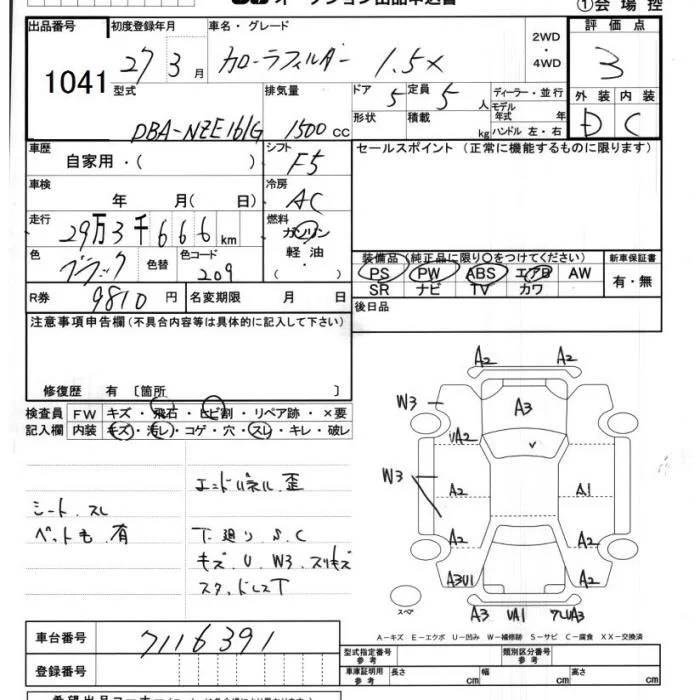 オークション出品申込書
①会場控
出品番号
1041
初度登録年月
27 3月
車名・グレード
カローラフィルダー 1.5X
2WD
・
4WD
評価点
3
型式
DBA-NZE161G
排気量
1500cc
ドア
5
定員
5人
形状
積載
kg
ディーラー・並行
モデル
年式 年
ハンドル 左・右
外装 内装
D C
車歴
自家用・( )
シフト
F5
セールスポイント (正常に機能するものに限ります)
車検
年 月( 日)
冷房
AC
走行
29万3千666km
燃料
ガソリン
軽油
( )
色
ブラック
色替
色コード
209
装備品(純正品に限り○をつけてください)
PS PW ABS エアB AW
SR ナビ TV カワ
新車保証書
有・無
R券
9810円
名変期限 月 日
後日品
注意事項申告欄(不具合内容等は具体的に記入して下さい)
修復歴 有 〔箇所 〕
検査員
記入欄
FW キズ・飛石・ヒビ割・リペア跡・×要
内装 キズ・汚レ・コゲ・穴・スレ・キレ・破レ
エンドパネル 歪
シート スレ
ペットも 有
下廻り S.C
キズ.U W3 スリキズ
スタッドレスT
A2 A2
W3 A3
UA2
W3 A2 A1
A2 A2
A3U1 A2
スペア
A3 UA1 ワレUA3
A－キズ E－エクボ U－凹み W－補修跡 S－サビ C－腐食 XX－交換済
車台番号
7116391
登録番号
型式指定番号
参考
類別区分番号
参考
車庫証明用
参考
長さ cm 幅 cm 高さ cm